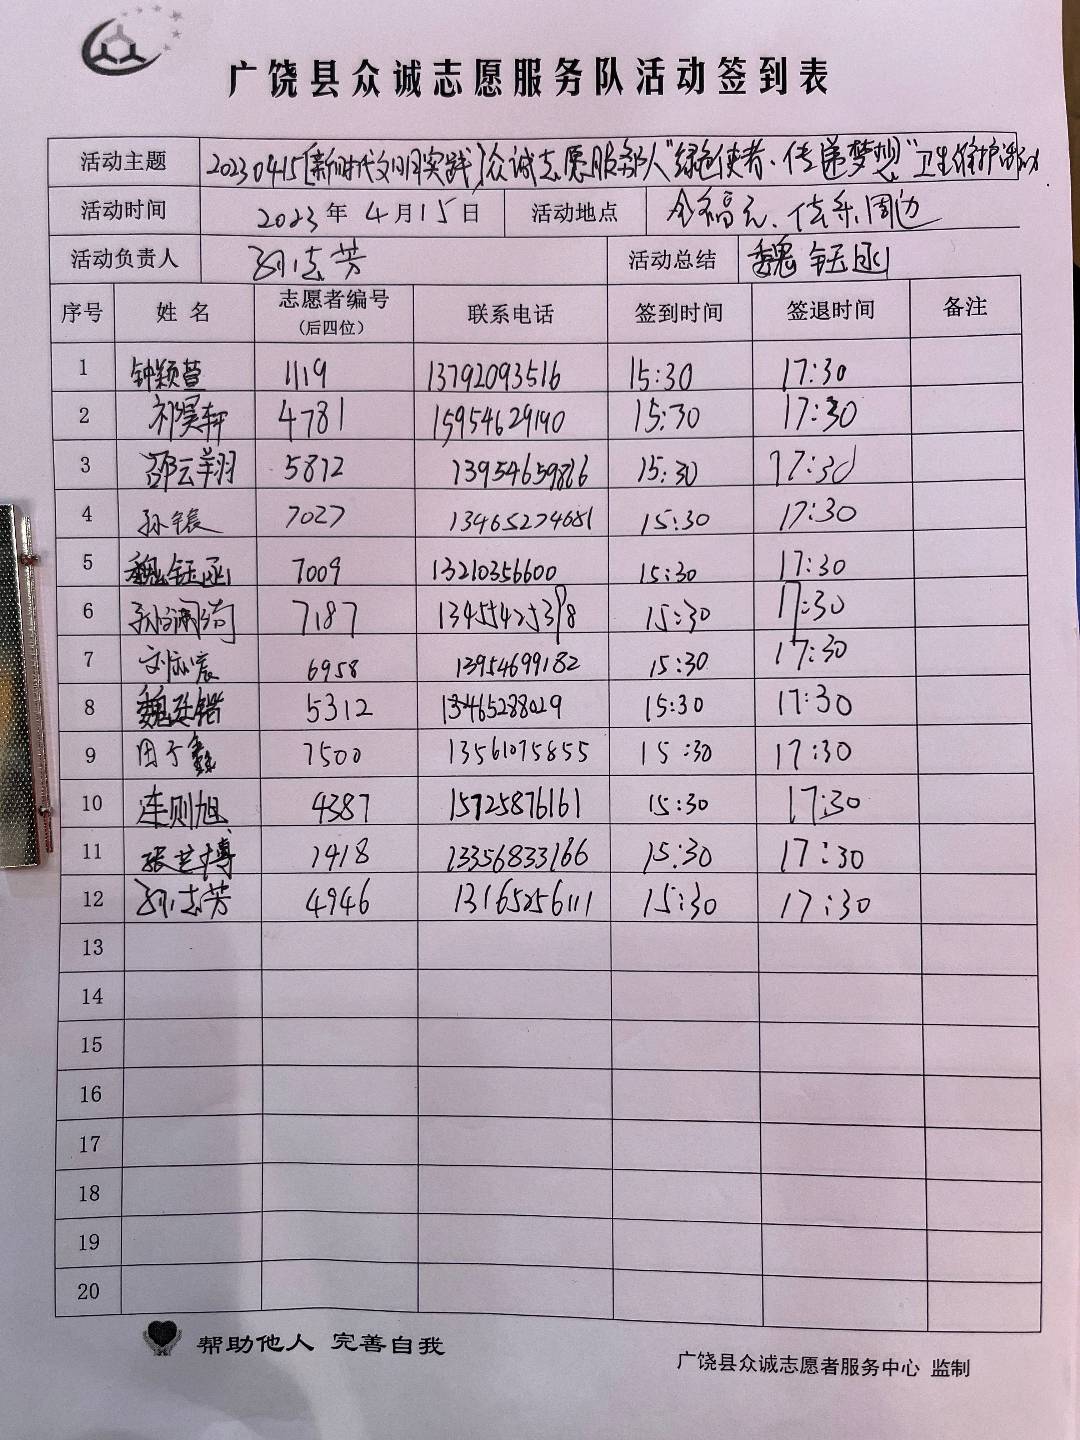 广饶县众诚志愿服务队活动签到表
活动主题 20230415[新时代文明实践]众诚志愿服务队"绿色使者·传递梦想"卫生维护活动
活动时间 2023年4月15日 活动地点 全福元、信誉周边
活动负责人 志芳 活动总结 魏钰函
序号 姓 名 志愿者编号 (后四位) 联系电话 签到时间 签退时间 备注
1 钟颖萱 1119 13792093516 15:30 17:30
2 祁昊轩 4781 15954629190 15:30 17:30
3 邵云翔 5812 13954659866 15:30 17:30
4 孙宸 7027 13465274681 15:30 17:30
5 魏钰函 7009 13210356600 15:30 17:30
6 7187 13455425398 15:30 17:30
7 刘 宸 6958 13954699182 15:30 17:30
8 魏廷锴 5312 13465288029 15:30 17:30
9 田子鑫 7500 13561075855 15:30 17:30
10 连则旭 4387 15725876161 15:30 17:30
11 张艺博 1418 13356833166 15:30 17:30
12 志芳 4946 13165256111 15:30 17:30
13
14
15
16
17
18
19
20
帮助他人 完善自我
广饶县众诚志愿者服务中心 监制